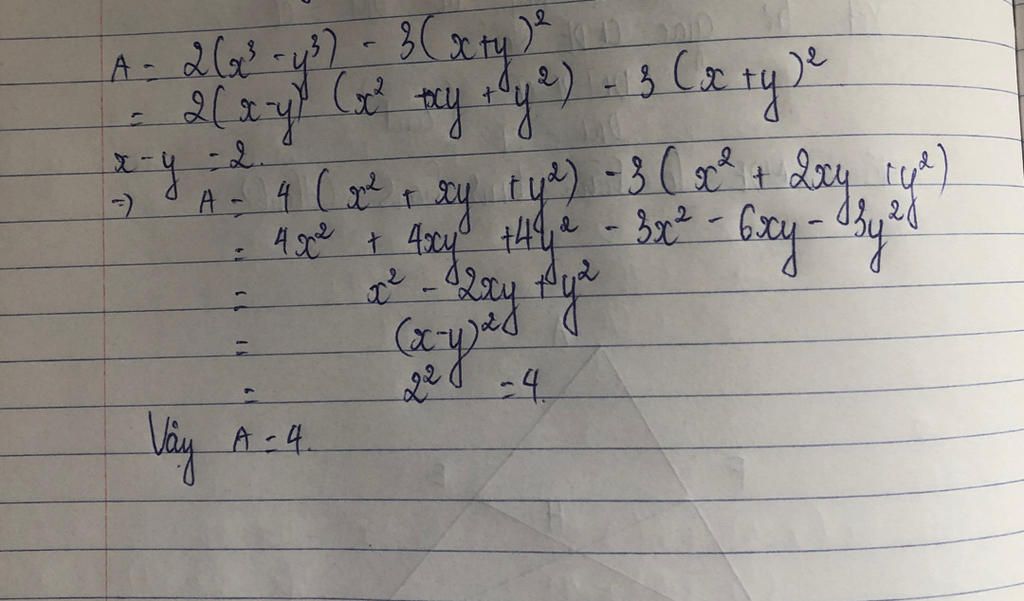 A = 2(x³ - y³) - 3(x+y)²
= 2(x-y) (x² +xy + y²) - 3 (x+y)²
x - y = 2.
=) A = 4 (x² + xy + y²) - 3(x² + 2xy + y²)
= 4x² + 4xy + 4y² - 3x² - 6xy - 3y²
= x² - 2xy + y²
= (x-y)²
= 2² = 4.
Vậy A = 4.